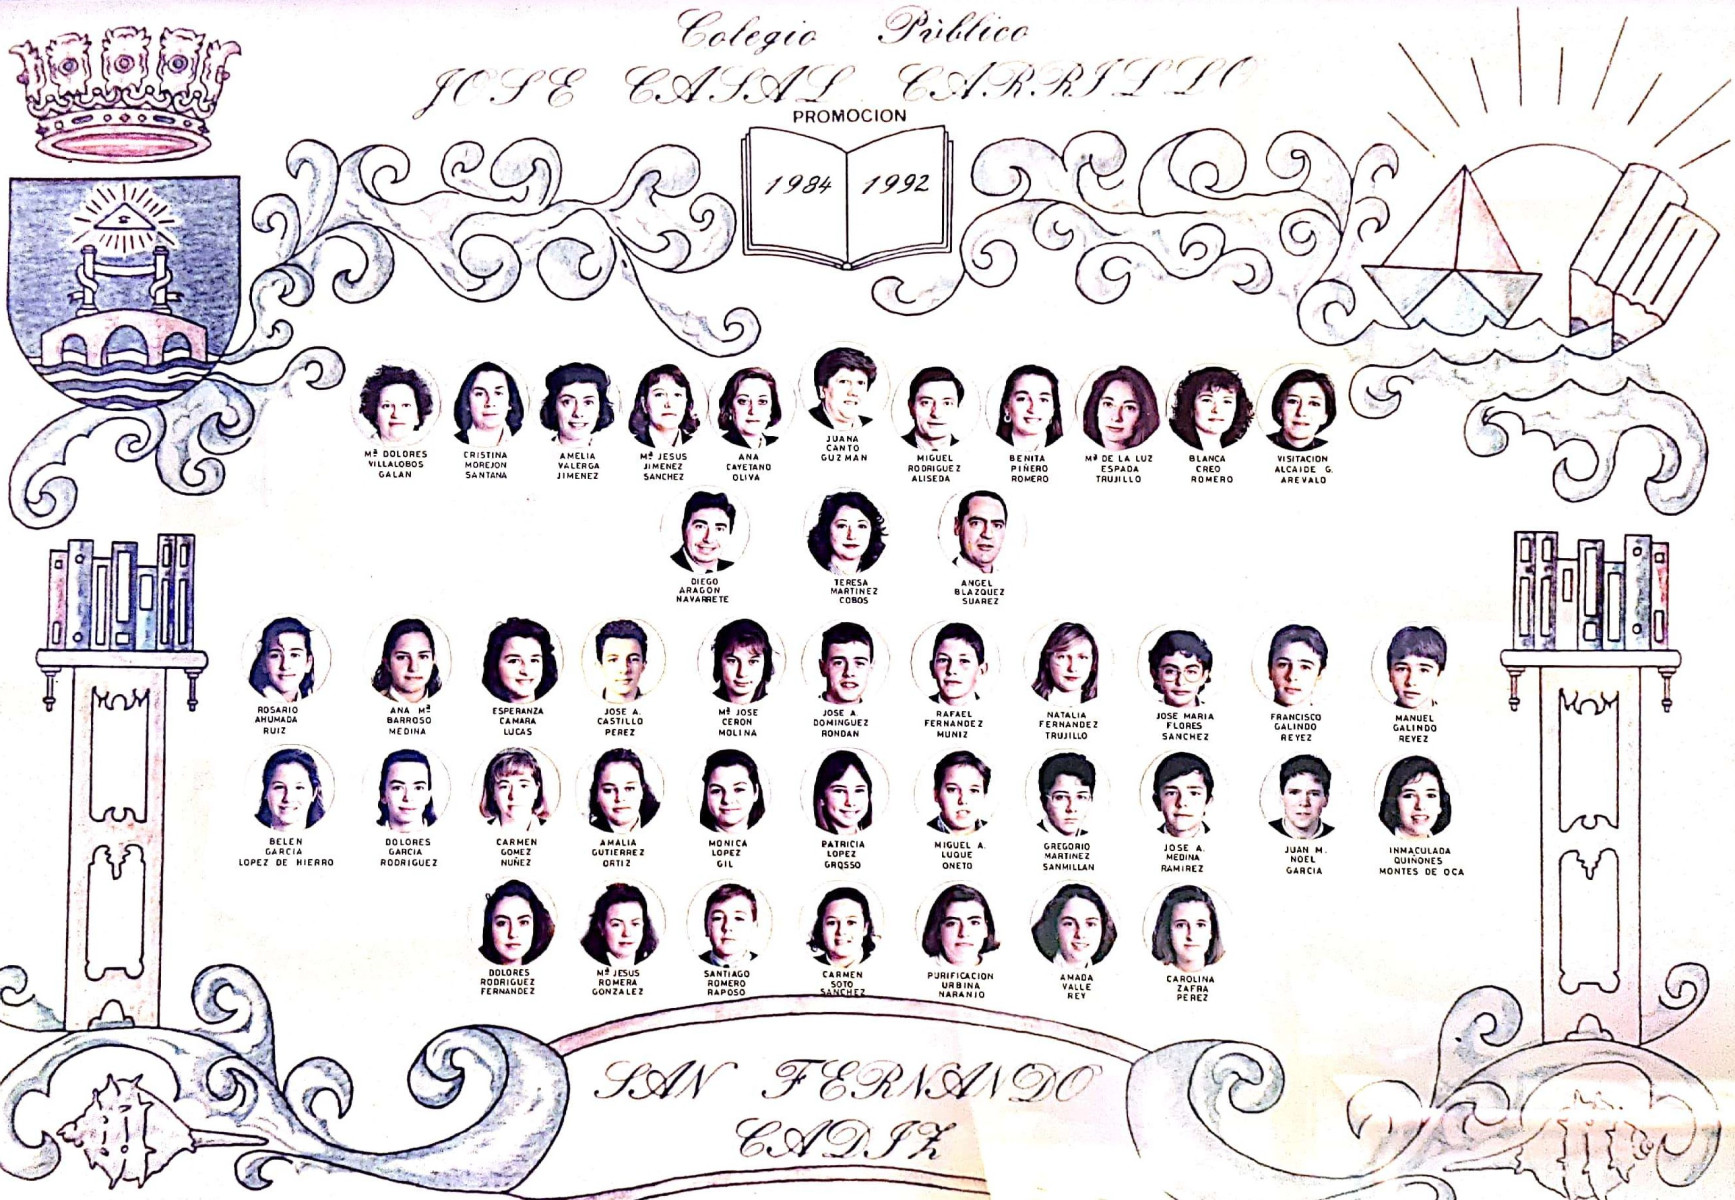 Colegio Público
JOSE CASAL CARRILLO
PROMOCION
1984 1992
Mª DOLORES
VILLALOBOS
GALAN
CRISTINA
MOREJON
SANTANA
AMELIA
VALERGA
JIMENEZ
Mª JESUS
JIMENEZ
SANCHEZ
ANA
CAYETANO
OLIVA
JUANA
CANTO
GUZMAN
MIGUEL
RODRIGUEZ
ALISEDA
BENITA
PIÑERO
ROMERO
Mª DE LA LUZ
ESPADA
TRUJILLO
BLANCA
CREO
ROMERO
VISITACION
ALCAIDE G.
AREVALO
DIEGO
ARAGON
NAVARRETE
TERESA
MARTINEZ
COBOS
ANGEL
BLAZQUEZ
SUAREZ
ROSARIO
AHUMADA
RUIZ
ANA Mª
BARROSO
MEDINA
ESPERANZA
CAMARA
LUCAS
JOSE A.
CASTILLO
PEREZ
Mª JOSE
CERON
MOLINA
JOSE A.
DOMINGUEZ
RONDAN
RAFAEL
FERNANDEZ
MUNIZ
NATALIA
FERNANDEZ
TRUJILLO
JOSE MARIA
FLORES
SANCHEZ
FRANCISCO
GALINDO
REYEZ
MANUEL
GALINDO
REYEZ
BELEN
GARCIA
LOPEZ DE HIERRO
DOLORES
GARCIA
RODRIGUEZ
CARMEN
GOMEZ
NUÑEZ
AMALIA
GUTIERREZ
ORTIZ
MONICA
LOPEZ
GIL
PATRICIA
LOPEZ
GROSSO
MIGUEL A.
LUQUE
ONETO
GREGORIO
MARTINEZ
SANMILLAN
JOSE A.
MEDINA
RAMIREZ
JUAN M.
NOEL
GARCIA
INMACULADA
QUIÑONES
MONTES DE OCA
DOLORES
RODRIGUEZ
FERNANDEZ
Mª JESUS
ROMERA
GONZALEZ
SANTIAGO
ROMERO
RAPOSO
CARMEN
SOTO
SANCHEZ
PURIFICACION
URBINA
NARANJO
AMADA
VALLE
REY
CAROLINA
ZAFRA
PEREZ
SAN FERNANDO
CADIZ